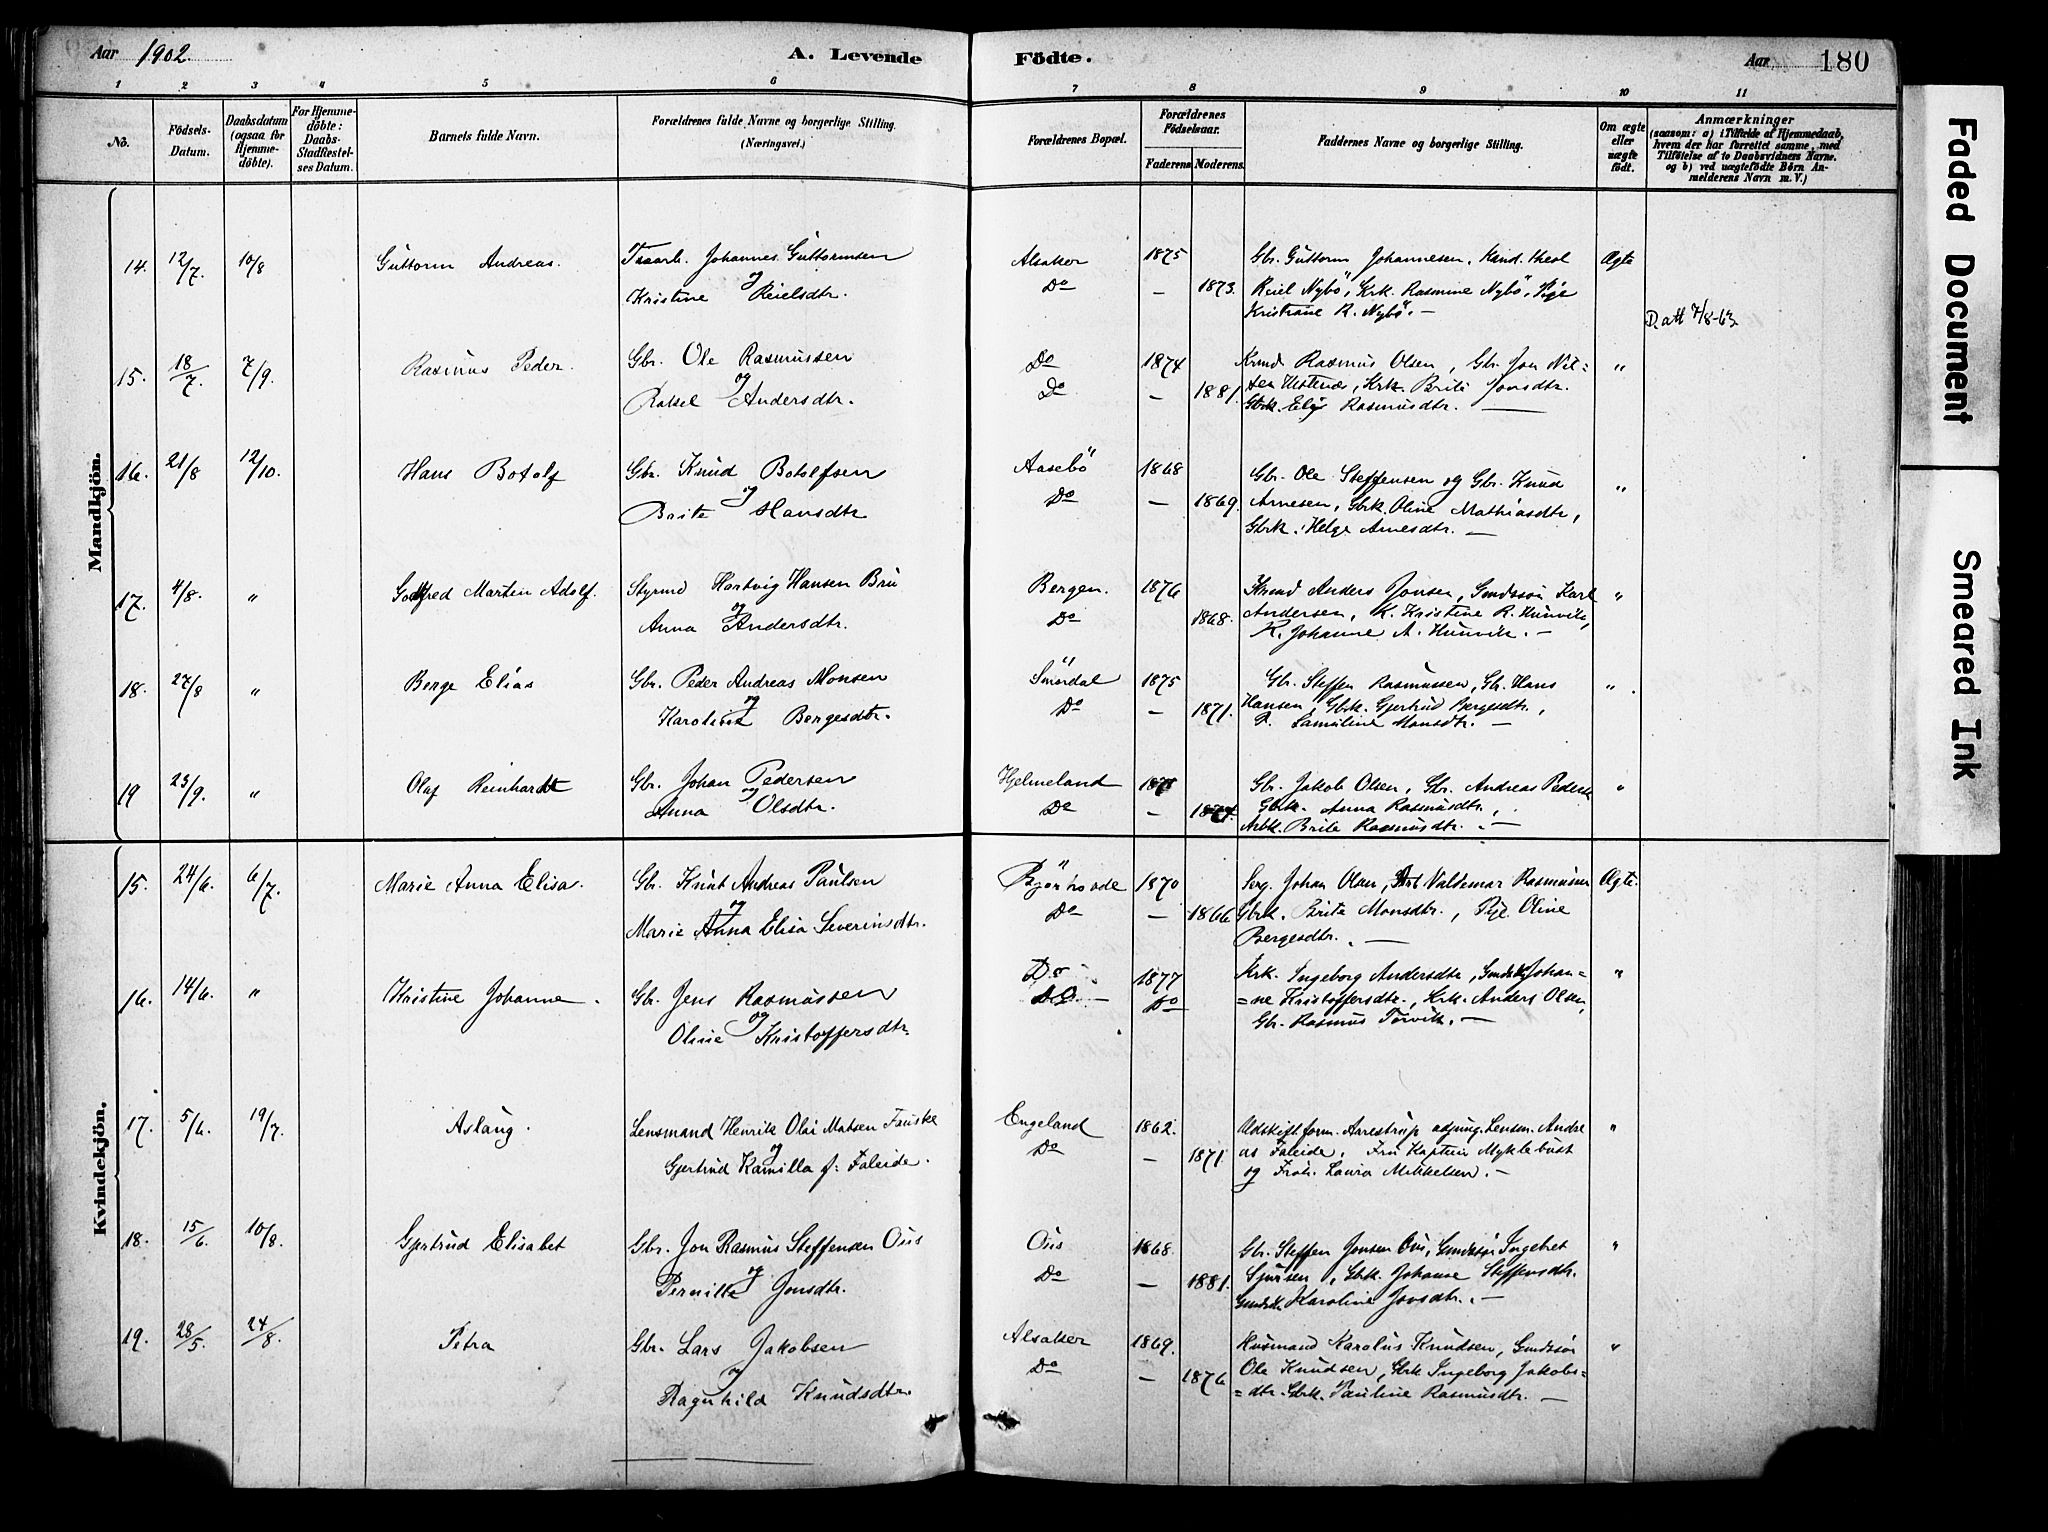 Aar 1902. A. Levende Födte. Aar 180
1 2 3 4 5 6 7 8 9 10 11
No. Födsels-Datum. Daabsdatum (ogsaa for Hjemmedöbte). For Hjemmedöbte: Daabs-Stadfæstelses Datum. Barnets fulde Navn. Forældrenes fulde Navne og borgerlige Stilling. (Næringsvei.) Forældrenes Bopæl. Forældrenes Födselsaar. Faderens Moderens. Faddernes Navne og borgerlige Stilling. Om ægte eller uægte födt. Anmærkninger (saasom: a) i Tilfælde af Hjemmedaab, hvem der har forrettet samme, med Tilföielse af to Daabsvidners Navne, og b) ved uægtefödte Börn Anmelderens Navn m. V.)
Mandkjön.
14. 12/7. 10/8 Guttorm Andreas. Johannes Guttormsen Alsaker 1875 Gbr. Guttorm Johannesen, Kand. theol Ægte
og
Kristine Reielsdtr. Do — 1873. Reiel Nybö, Krk. Rasmine Nybö, Pige
Kristiane R. Nybö. —
D. att 7/8-63.
15. 18/7. 7/9. Rasmus Peder. Gbr. Ole Rasmussen Do 1874 Rasmus Olsen, Gbr. Jon Nil= "
og
Rakel Andersdtr. Do — 1881. sen Hestenæs, Krk. Brite Jonsdtr.
Gbrk. Elis Rasmusdtr. —
16. 21/8 12/10. Hans Botolf Gbr. Knud Botolfsen Aasebö 1868 Gbr. Ole Steffensen og Gbr. Knud "
og
Brite Hansdtr Do — 1869. Arnesen, Gbrk. Oline Mathiasdtr,
Gbrk. Helge Arnesdtr. —
17. 4/8. " Gotfred Martin Adolf. Styrmd Hartvig Hansen Bru Bergen. 1876 Anders Jonsen, Gmdssön Karl "
og
Anna Andersdtr. Do 1868. Andersen, K. Kristine R. Hunvik,
K. Johanne A. Hunvik. —
18. 27/8 " Berge Elias Gbr. Peder Andreas Monsen Smördal 1875 Gbr. Steffen Rasmussen, Gb. Hans "
og
Karoline Bergesdtr. Do — 1871. Hansen, Gbrk. Gjertrud Bergesdtr,
P. Samuline Monsdtr. —
19 23/9. " Olaf Reinhardt Gbr. Johan Pedersen Hjelmeland Gbr. Jakob Olsen, Gbr. Andreas Peders "
og
Anna Olsdtr. Do — Gbrk. Anna Rasmusdtr,
Brite Rasmusdtr. —
Kvindekjön.
15. 24/6. 6/7. Marie Anna Elisa. Gbr. Knut Andreas Paulsen Björhovde 1870 Serg. Johan Olsen, Valdemar Rasmussen Ægte.
og
Marie Anna Elisa Severinsdtr. Do — 1866 Gbrk. Brite Monsdtr., Pige Oline
Bergesdtr. —
16. 14/6. " Kristine Johanne. Gbr. Jens Rasmussen Do 1877 Krk. Ingeborg Andersdtr, Johan= "
og
Oline Kristoffersdtr. Do — Do =ne Kristoffersdtr., Krk. Anders Olsen,
Gbr. Rasmus Torvik. —
17. 5/6. 19/7. Aslaug. Lensmand Henrik Olai Matsen Fauske Engeland 1862. Udskiftform. Aarestrup, adjung. Lensm. Andre "
og
Gjertrud Kamilla f. Faleide. Do — 1871 as Faleide, Fru Kaptein Myklebust
og Frök. Laura Mikkelsen. —
18. 15/6. 10/8. Gjertrud Elisabet Gbr. Jon Rasmus Steffensen Ous Ous 1868. Gbr. Steffen Jonsen Ous, Gmdssön Ingebret "
og
Pernille Jonsdtr. Do — 1881. Sjursen, Gbrk. Johanne Steffensdtr.
Karoline Jonsdtr. —
19. 28/5. 24/8. Petra Gbr. Lars Jakobsen Alsaker 1869. Husmand Karolus Knudsen, Gmdssön "
og
Ragnhild Knudsdtr. Do — 1876 Ole Knudsen, Gbrk Ingeborg Jakobs=
=dtr. Gbrk. Pauline Rasmusdtr. —
Faded Document
Smeared Ink